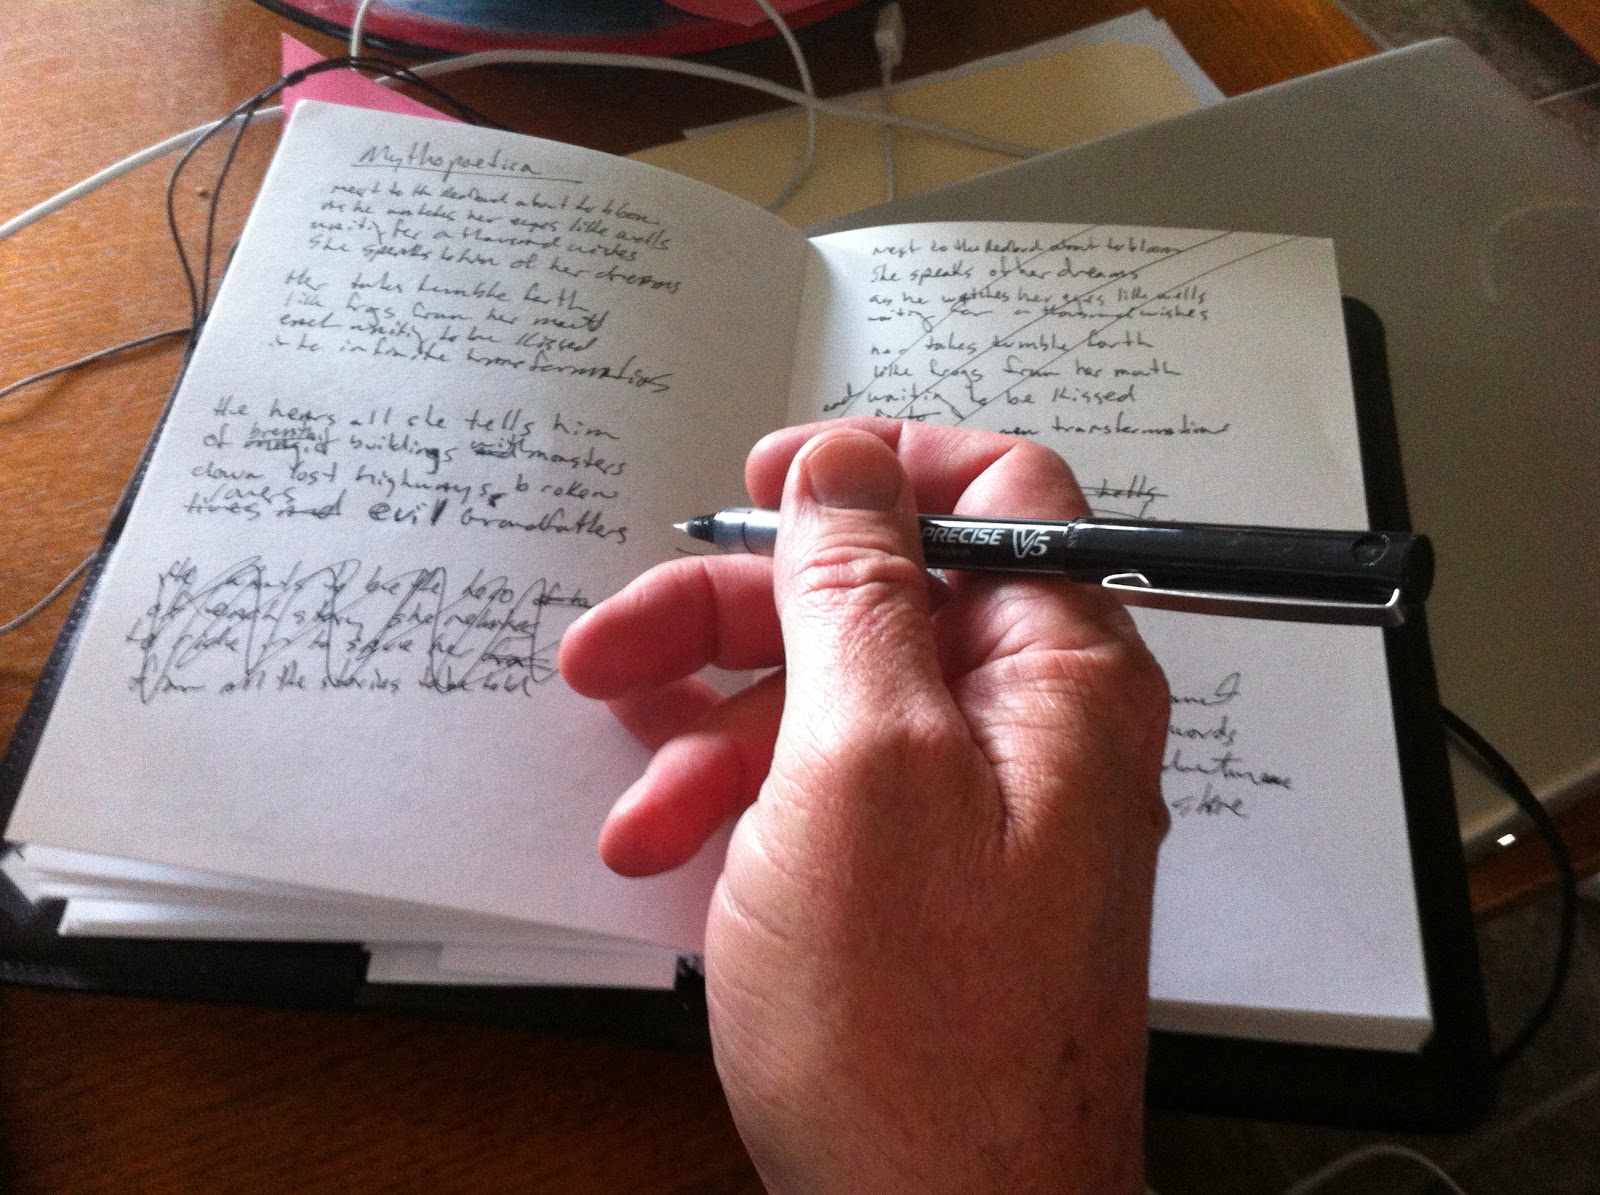 Mythopoetica
next to the Redbud about to bloom
As he watches her eyes like wells
waiting for a thousand wishes
She speaks to him of her dreams
Her tales tumble forth
like frogs from her mouth
each waiting to be kissed
into infinite transformations
He hears all she tells him
of breathing buildings with monsters
down lost highways, broken
lovers
lives and evil Grandfathers
He wants to be the hero
of each story she
to ride in to save her
all the stories to be told
next to the Redbud about to bloom
She speaks of her dreams
as he watches her eyes like wells
waiting for a thousand wishes
her tales tumble forth
like frogs from her mouth
and waiting to be kissed
into new transformations
tells
words
shore
PRECISE V5